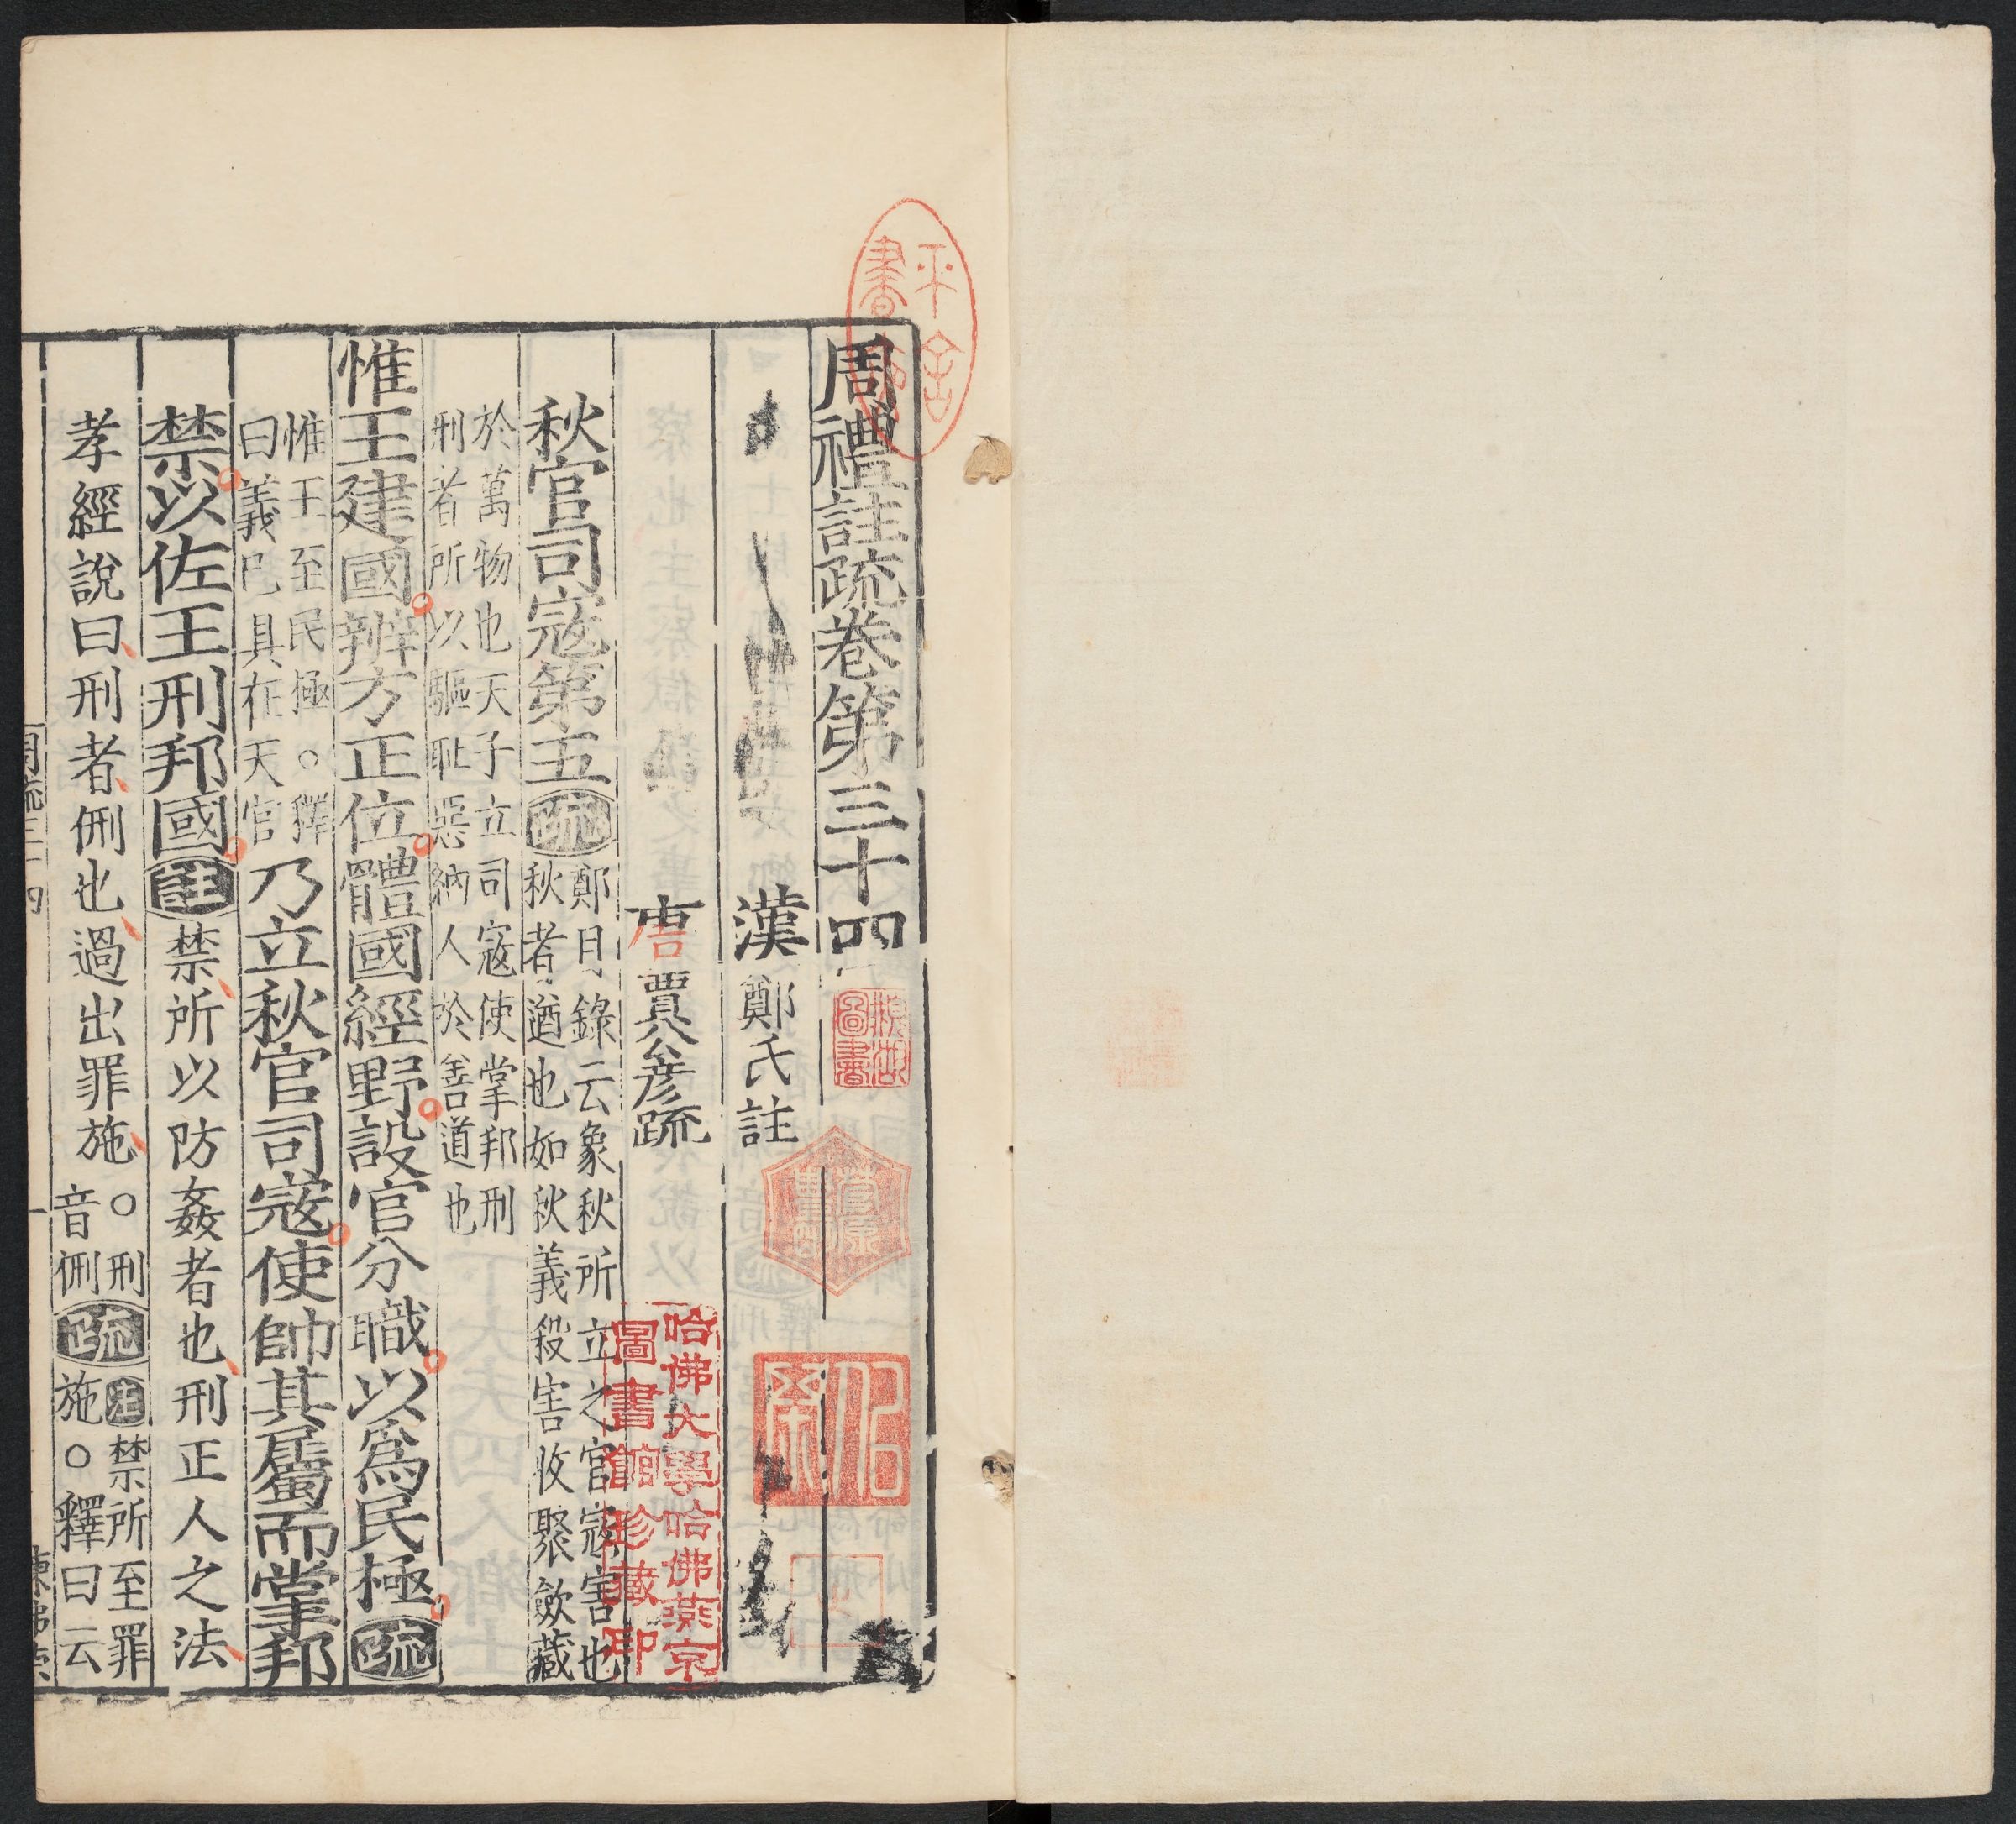 周禮註疏卷第三十四
漢鄭氏註
唐賈公彥疏
秋官司寇第五疏鄭目錄云象秋所立之官寇害也
秋者遒也如秋義殺害收聚斂藏
於萬物也天子立司寇使掌邦刑
刑者所以驅耻惡納人於善道也
惟王建國辨方正位體國經野設官分職以爲民極疏
惟王至民極○釋
曰義已具在天官
乃立秋官司寇使帥其屬而掌邦
禁以佐王刑邦國註禁所以防姦者也刑正人之法
孝經說曰刑者侀也過出罪施○刑
音侀疏注禁所至罪
施○釋曰云
周疏三十四
一
哈佛大學哈佛燕京
圖書館珍藏印
圖書